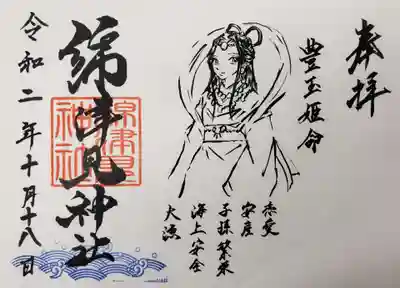 奉拝
豊玉姫命
恋愛
安産
子孫繁栄
海上安全
大漁
綿津見神社
綿津見
神社
令和二年十月十八日